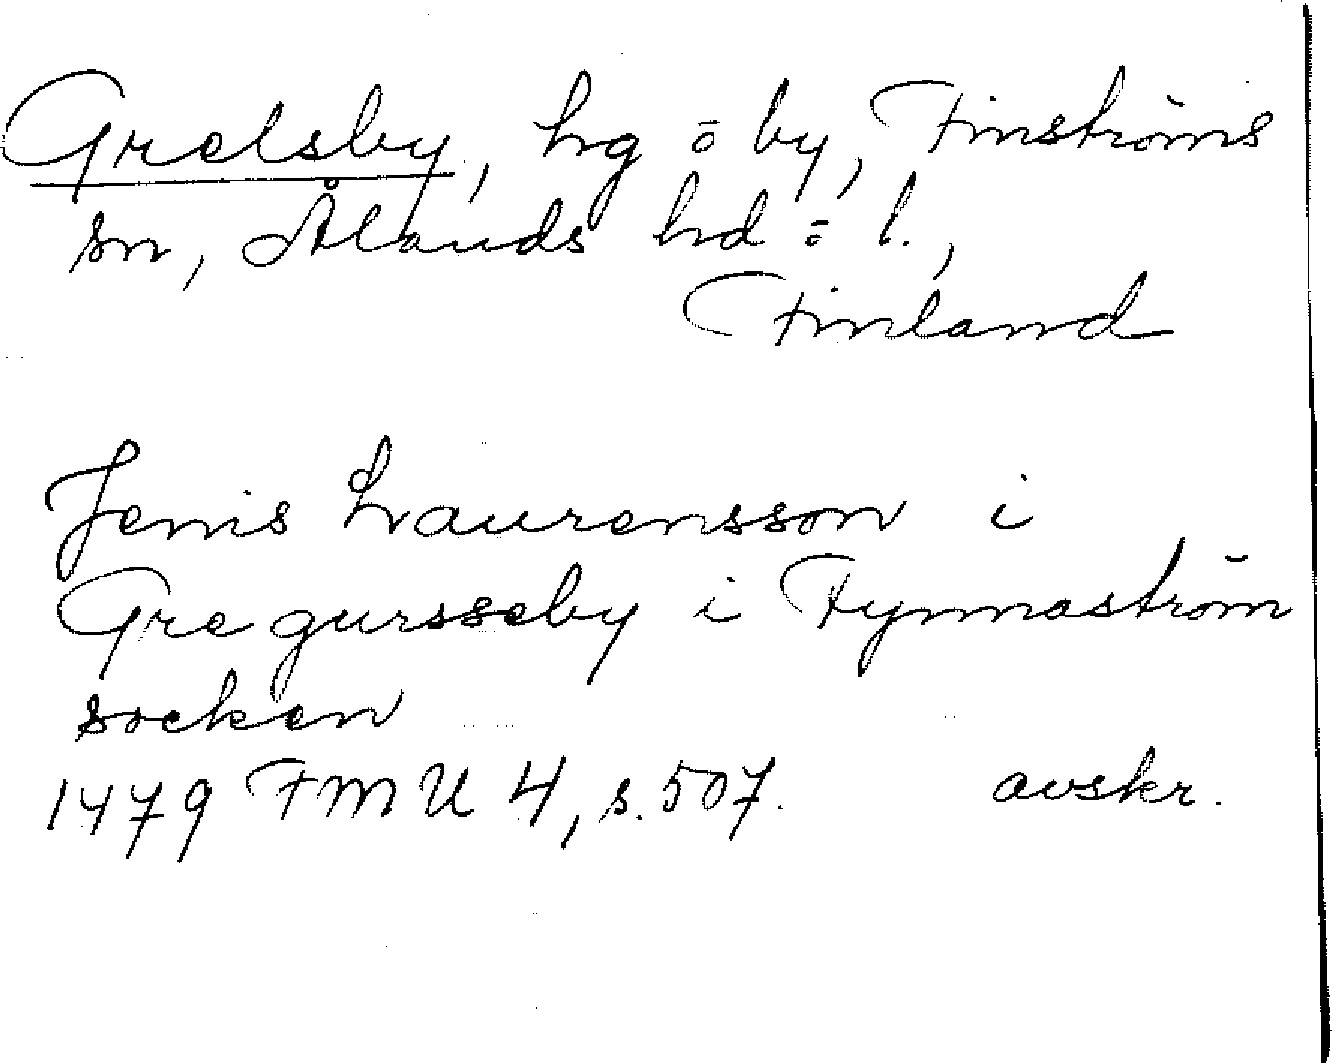 Grelsby, hg o by, Finströms
sn, Ålands hd o l.,
Finland
Jenis Laurensson i
Gregursseby i Fynnaström
socken
1479 FMU 4, s. 507. avskr.